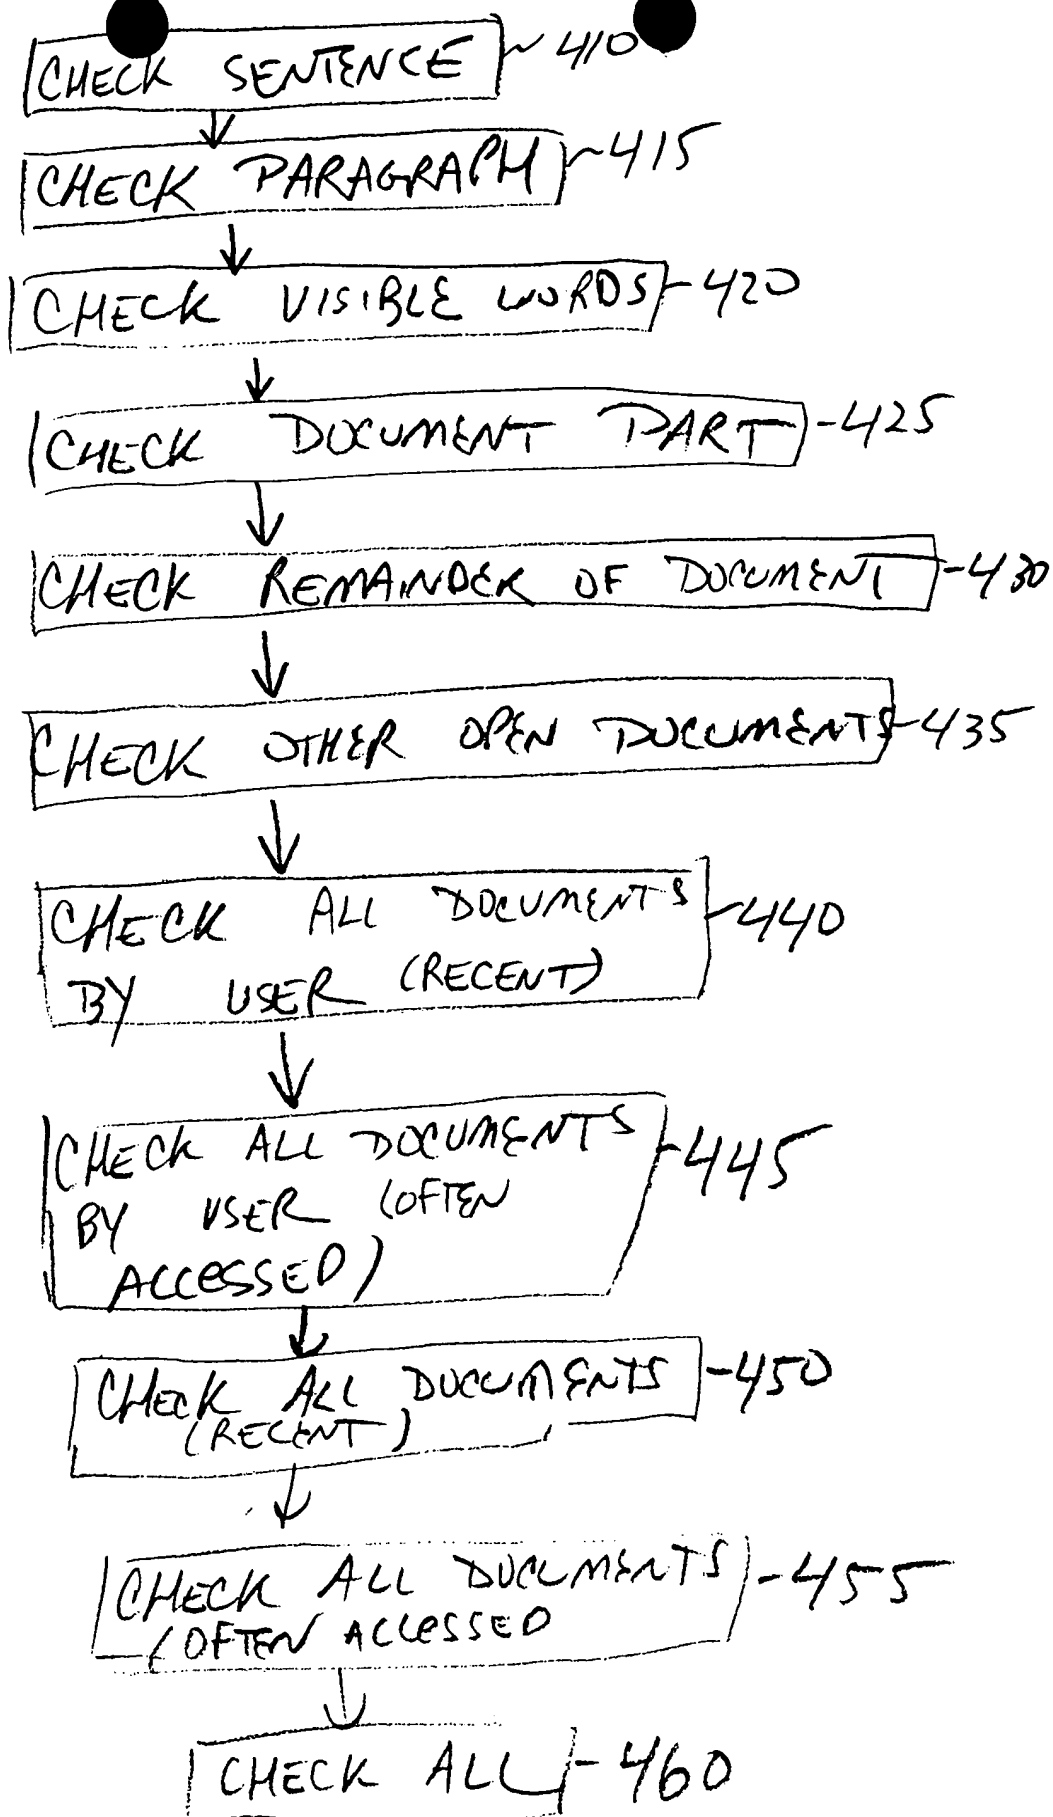 CHECK SENTENCE ~410
CHECK PARAGRAPH ~415
CHECK VISIBLE WORDS -420
CHECK DOCUMENT PART -425
CHECK REMAINDER OF DOCUMENT -430
CHECK OTHER OPEN DOCUMENTS -435
CHECK ALL DOCUMENTS -440
BY USER (RECENT)
CHECK ALL DOCUMENTS -445
BY USER (OFTEN
ACCESSED)
CHECK ALL DOCUMENTS -450
(RECENT)
CHECK ALL DOCUMENTS -455
(OFTEN ACCESSED
CHECK ALL -460